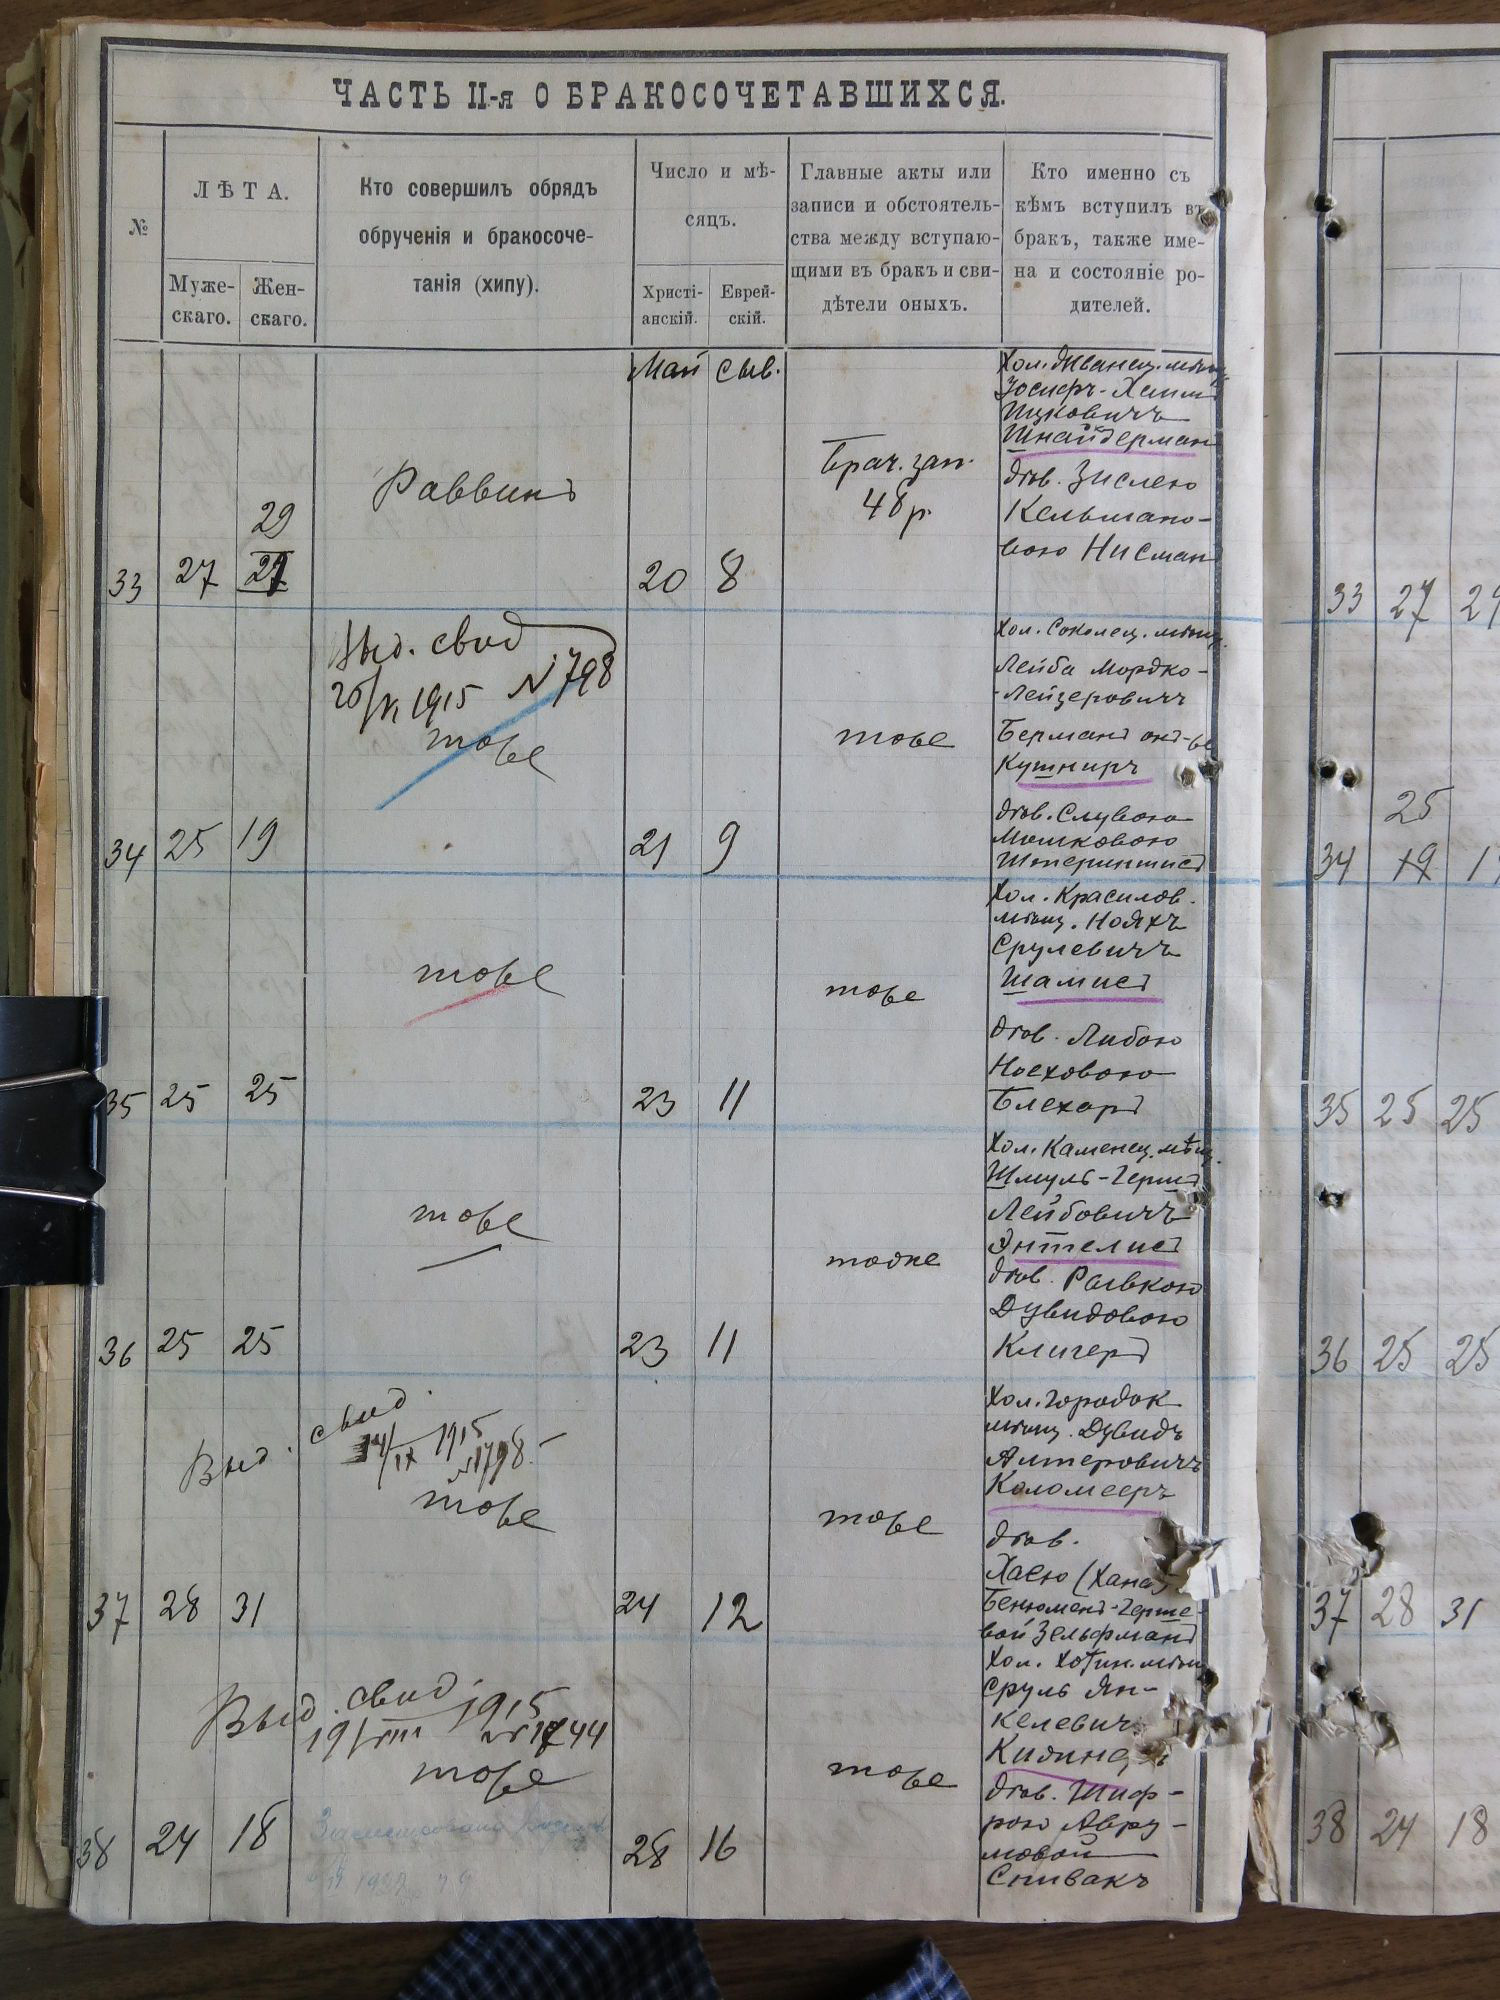 ЧАСТЬ II-я О БРАКОСОЧЕТАВШИХСЯ.
№
ЛѢТА.
Муже-
скаго.
Жен-
скаго.
Кто совершилъ обрядъ
обрученія и бракосоче-
танія (хипу).
Число и мѣ-
сяцъ.
Христі-
анскій.
Еврей-
скій.
Главные акты или
записи и обстоятель-
ства между вступаю-
щими въ бракъ и сви-
дѣтели оныхъ.
Кто именно съ
кѣмъ вступилъ въ
бракъ, также име-
на и состояніе ро-
дителей.
Май Сыв.
33 27 29
Раввинъ
20 8
Брач. зап.
48 р.
Хол. Жванец. мѣщ.
Іосифъ-Хаим
Ицковичъ
Шнайдерман
дѣв. Зислею
Кельмано-
вою Нисман
34 25 19
Выд. свид
1915 N 798
тоже
21 9
тоже
Хол. Соколец. мѣщ.
Лейба Мордко-
-Лейзеровичъ
Берман онъ-же
Кушниръ
дѣв. Слувою
Мошковою
35 25 25
тоже
23 11
тоже
Хол. Красилов.
мѣщ. Нояхъ
Срулевичъ
Шамис
дѣв. Либою
Ноеховою
Блехаръ
36 25 25
тоже
23 11
тоже
Хол. Каменец. мѣщ.
Шмуль-Герш
Лейбовичъ
Энтелис
дѣв. Рывкою
Дувидовою
Клигеръ
37 28 31
Выд. свид
14/IX 1915
N 1798
тоже
24 12
тоже
Хол. Городок
мѣщ. Дувидъ
Алтеровичъ
Коломееръ
дѣв.
Хаею (Хана)
Бенюмен-Герше-
вой Зельфман
38 24 18
Выд. свид 1915
19/VIII N 1744
тоже
28 16
тоже
Хол. Хотин. мѣщ.
Сруль Ян-
келевич
дѣв. Шиф-
рою Авру-
мовой
Спивакъ
33 27 29
25
34 19 1
35 25 25
36 25 25
37 28 31
38 24 18